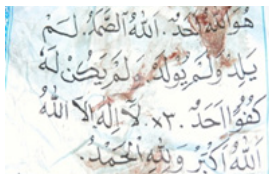 هُوَ اللهُ اَحَدٌ. اَللهُ الصَّمَدُ. لَمْ
يَلِدْ وَلَمْ يُولَدْ وَلَمْ يَكُنْ لَهُ
كُفُوًا اَحَدٌ. ×٣ لَا اِلٰهَ اِلَّا اللهُ
اَللهُ اَكْبَرُ وَلِلّٰهِ الْحَمْدُ.